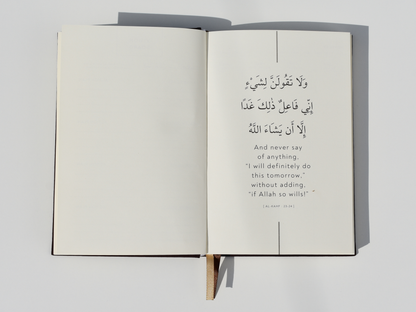 وَلَا تَقُولَنَّ لِشَيْءٍ
إِنِّي فَاعِلٌ ذَٰلِكَ غَدًا
إِلَّا أَن يَشَاءَ اللَّهُ
And never say
of anything,
"I will definitely do
this tomorrow,"
without adding,
"if Allah so wills!"